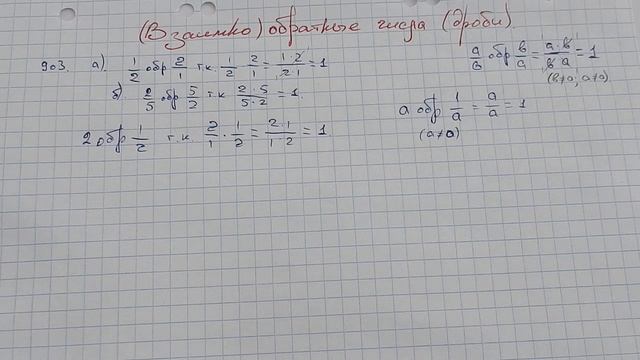 (Взаимно) обратные числа (дроби)
903. а). 1/2 обр 2/1 т.к. 1/2 · 2/1 = 1·2/2·1 = 1
б). 2/5 обр 5/2 т.к 2·5/5·2 = 1.
2 обр 1/2 т.к. 2/1 · 1/2 = 2·1/1·2 = 1
a/в обр в/a = a·в/в·a = 1
(в≠0; a≠0)
a обр 1/a = a/a = 1
(a≠0)